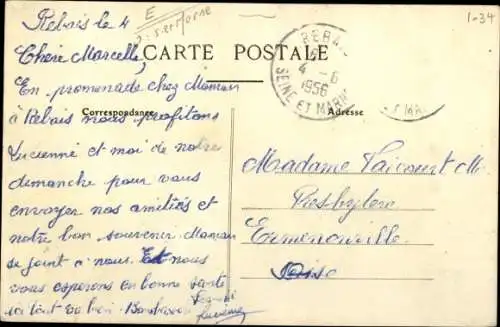 Rebais le 4
E
Set Marne
1-34
CARTE POSTALE
REBAIS
4 -6
1956
SEINE ET MARNE
Chère Marcelle,
En promenade chez Maman
Correspondance
Adresse
à Rebais nous profitons
Lucienne et moi de notre
dimanche pour vous
envoyer nos amitiés et
notre bon souvenir Maman
se joint à nous. Et nous
vous espérons en bonne santé
ici tout va bien. Bons baisers
Lucienne
Madame Vaicourt M.
Presbytère
Ermenonville
Oise